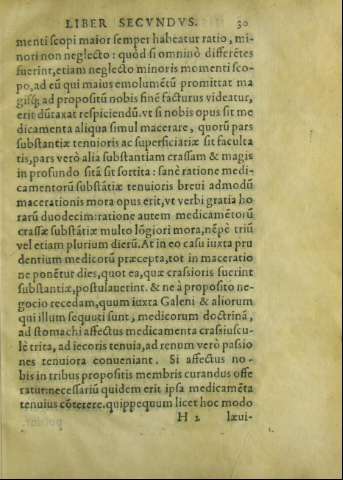 LIBER SECVNDVS. 30
menti scopi maior semper habeatur ratio, mi-
nori non neglecto: quòd si omninò differẽtes
fuerint, etiam neglecto minoris momenti sco-
po, ad eũ qui maius emolumẽtũ promittat ma
gisq; ad propositũ nobis finẽ facturus videatur,
erit dũtaxat respiciendũ. vt si nobis opus sit me
dicamenta aliqua simul macerare, quorũ pars
substantiæ tenuioris ac superficiariæ sit faculta
tis, pars verò alia substantiam crassam & magis
in profundo sitã sit sortita: sanè ratione medi-
camentorũ substãtiæ tenuioris breui admodũ
macerationis mora opus erit, vt verbi gratia ho
rarũ duodecim: ratione autem medicamẽtorũ
crassæ substãtiæ multo lõgiori mora, nẽpè triũ
vel etiam plurium dierũ. At in eo casu iuxta pru
dentium medicorũ præcepta, tot in maceratio
ne ponẽtur dies, quot ea, quæ crassioris fuerint
substantiæ, postulauerint. & ne à proposito ne-
gocio recedam, quum iuxta Galeni & aliorum
qui illum sequuti sunt, medicorum doctrinã,
ad stomachi affectus medicamenta crassiuscu-
lè trita, ad iecoris tenuia, ad renum verò passio
nes tenuiora conueniant. Si affectus no-
bis in tribus propositis membris curandus offe
ratur: necessariũ quidem erit ipsa medicamẽta
tenuius cõterere. quippe quum licet hoc modo
H 2 læui-